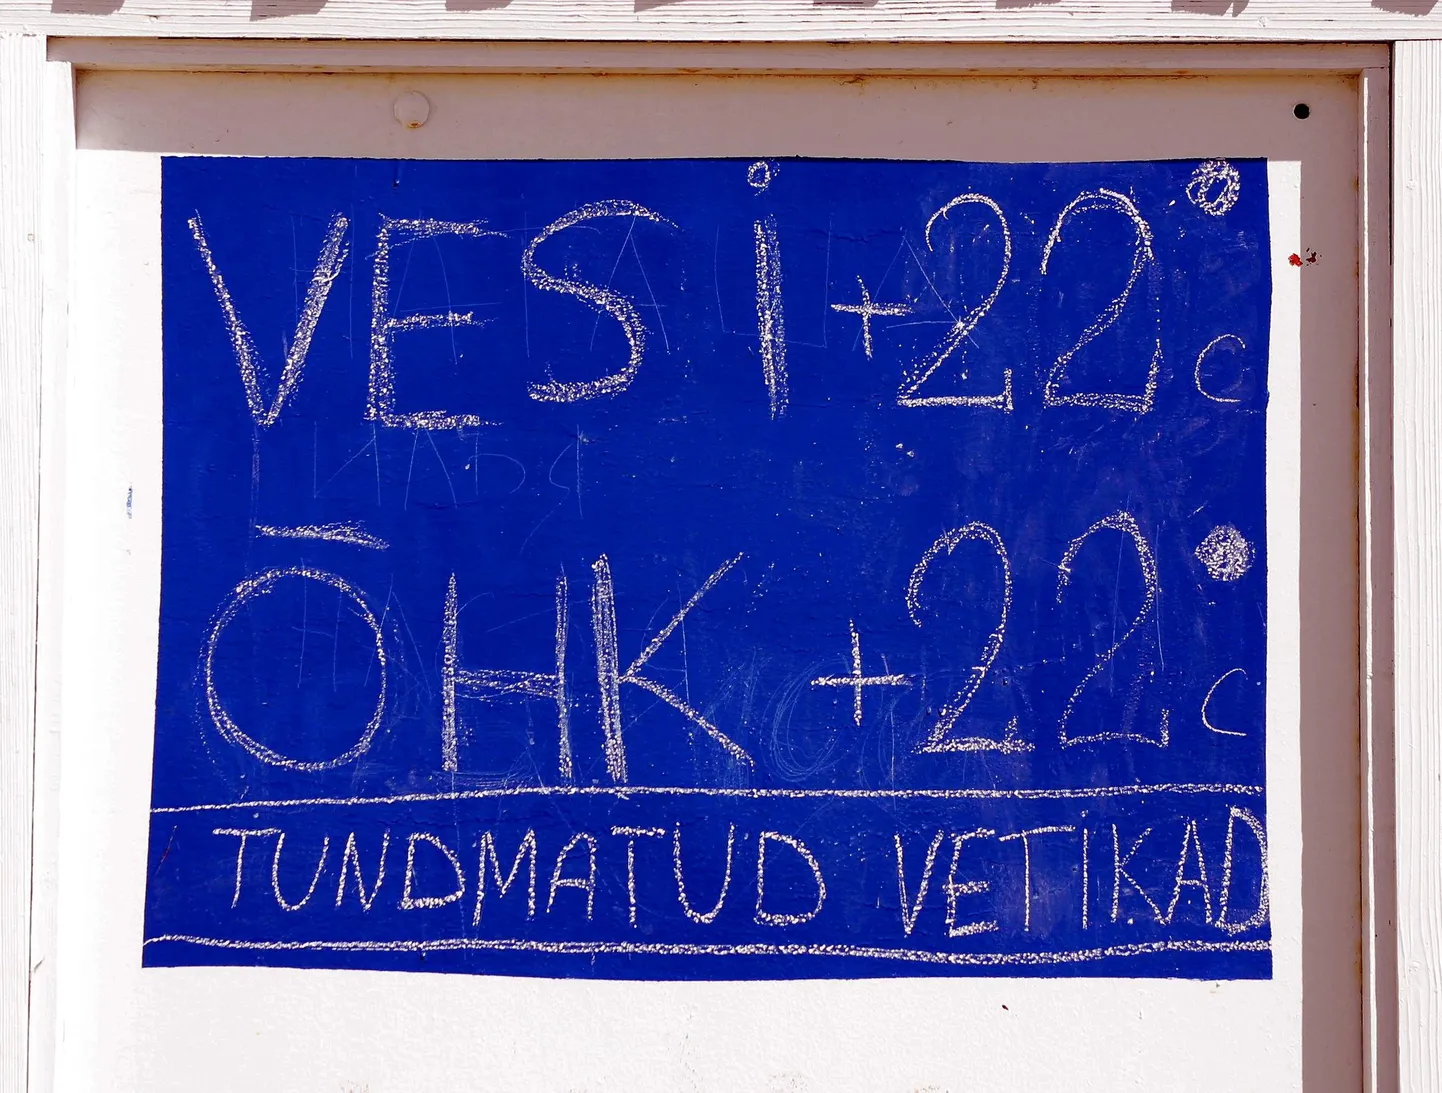 VESI +22°C
ÕHK +22°C
TUNDMATUD VETIKAD